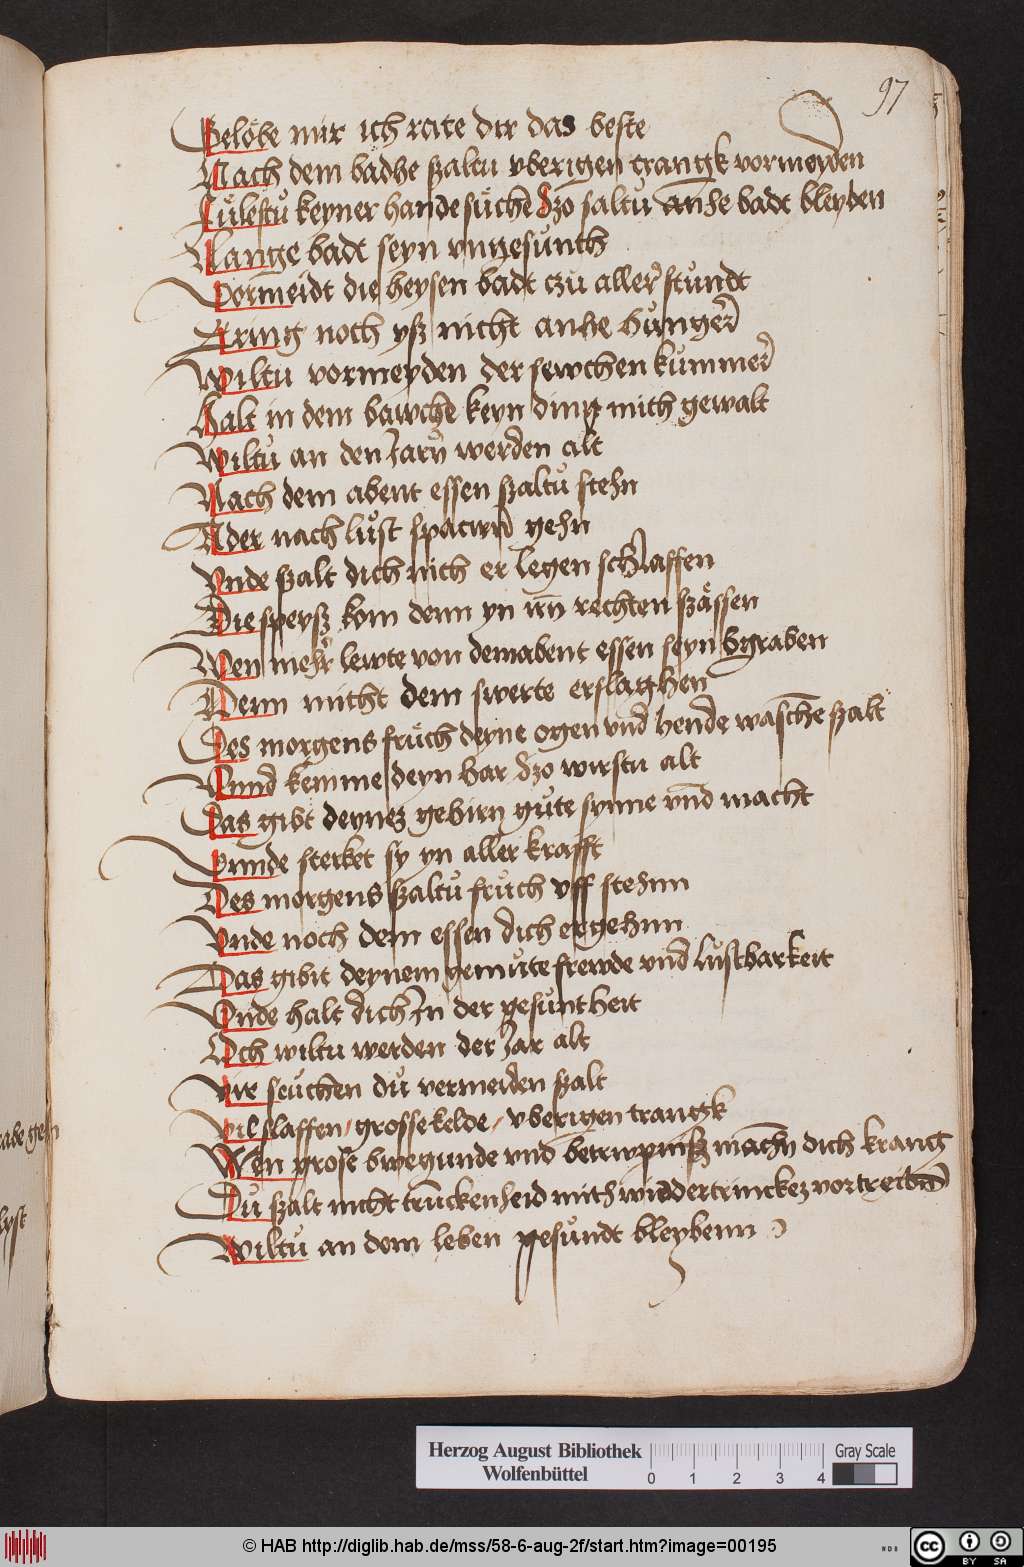 97
Gelobe mir ich rate dir das beste
Nach dem badhe szaltu vberigen trangk vormeyden
Lůlestu keyner hande sůchē dzo saltu anhe badt bleyden
Lange badt seyn vngesůnth
Vormeidt die heysen badt czu aller stundt
Aring noch ysz nicht anhe hůnger
Wiltu vormeyden der sewchen kummer
Halt in dem bawche keyn ding mith gewalt
Wiltů an den Jarn werden alt
Nach dem abent essen szaltů stehn
Ader nach lůst spacirn gehn
Vnde szalt dich nich er legen schlaffen
Die speysz kom denn yn irn rechten szåssen
Wen mehr lewte von dem abent essen seyn bgraben
Denn mitht dem swerte erslaghen
Des morgens frůch deyne ogen vnd hende waschē szalt
Vnnd kemme deyn har dzo wirstu alt
Das gibt deynez gehirn gůte synne vnd macht
Vnnde sterket sy yn aller krafft
Des morgens szaltů frůch vff stehnn
Vnde noch dem essen dich ergehnn
Das gibit deynem gemůte frewde vnd lůstbarkeit
Vnde halt dich In der gesůntheit
Och wiltu werden der Jar alt
Vir seuchen dů vermeiden szalt
Vil slaffen / grosse kelde / vberigen trangk
Wen grose bwegunde vnd betrwpnisz machn dich krangk
Dů szalt nicht trůckenheid mith widdertrinckez vortreibn
Wiltů an dem leben gesůndt bleybenn
Herzog August Bibliothek
Wolfenbüttel
0 1 2 3 4
Gray Scale
© HAB http://diglib.hab.de/mss/58-6-aug-2f/start.htm?image=00195
cc BY SA